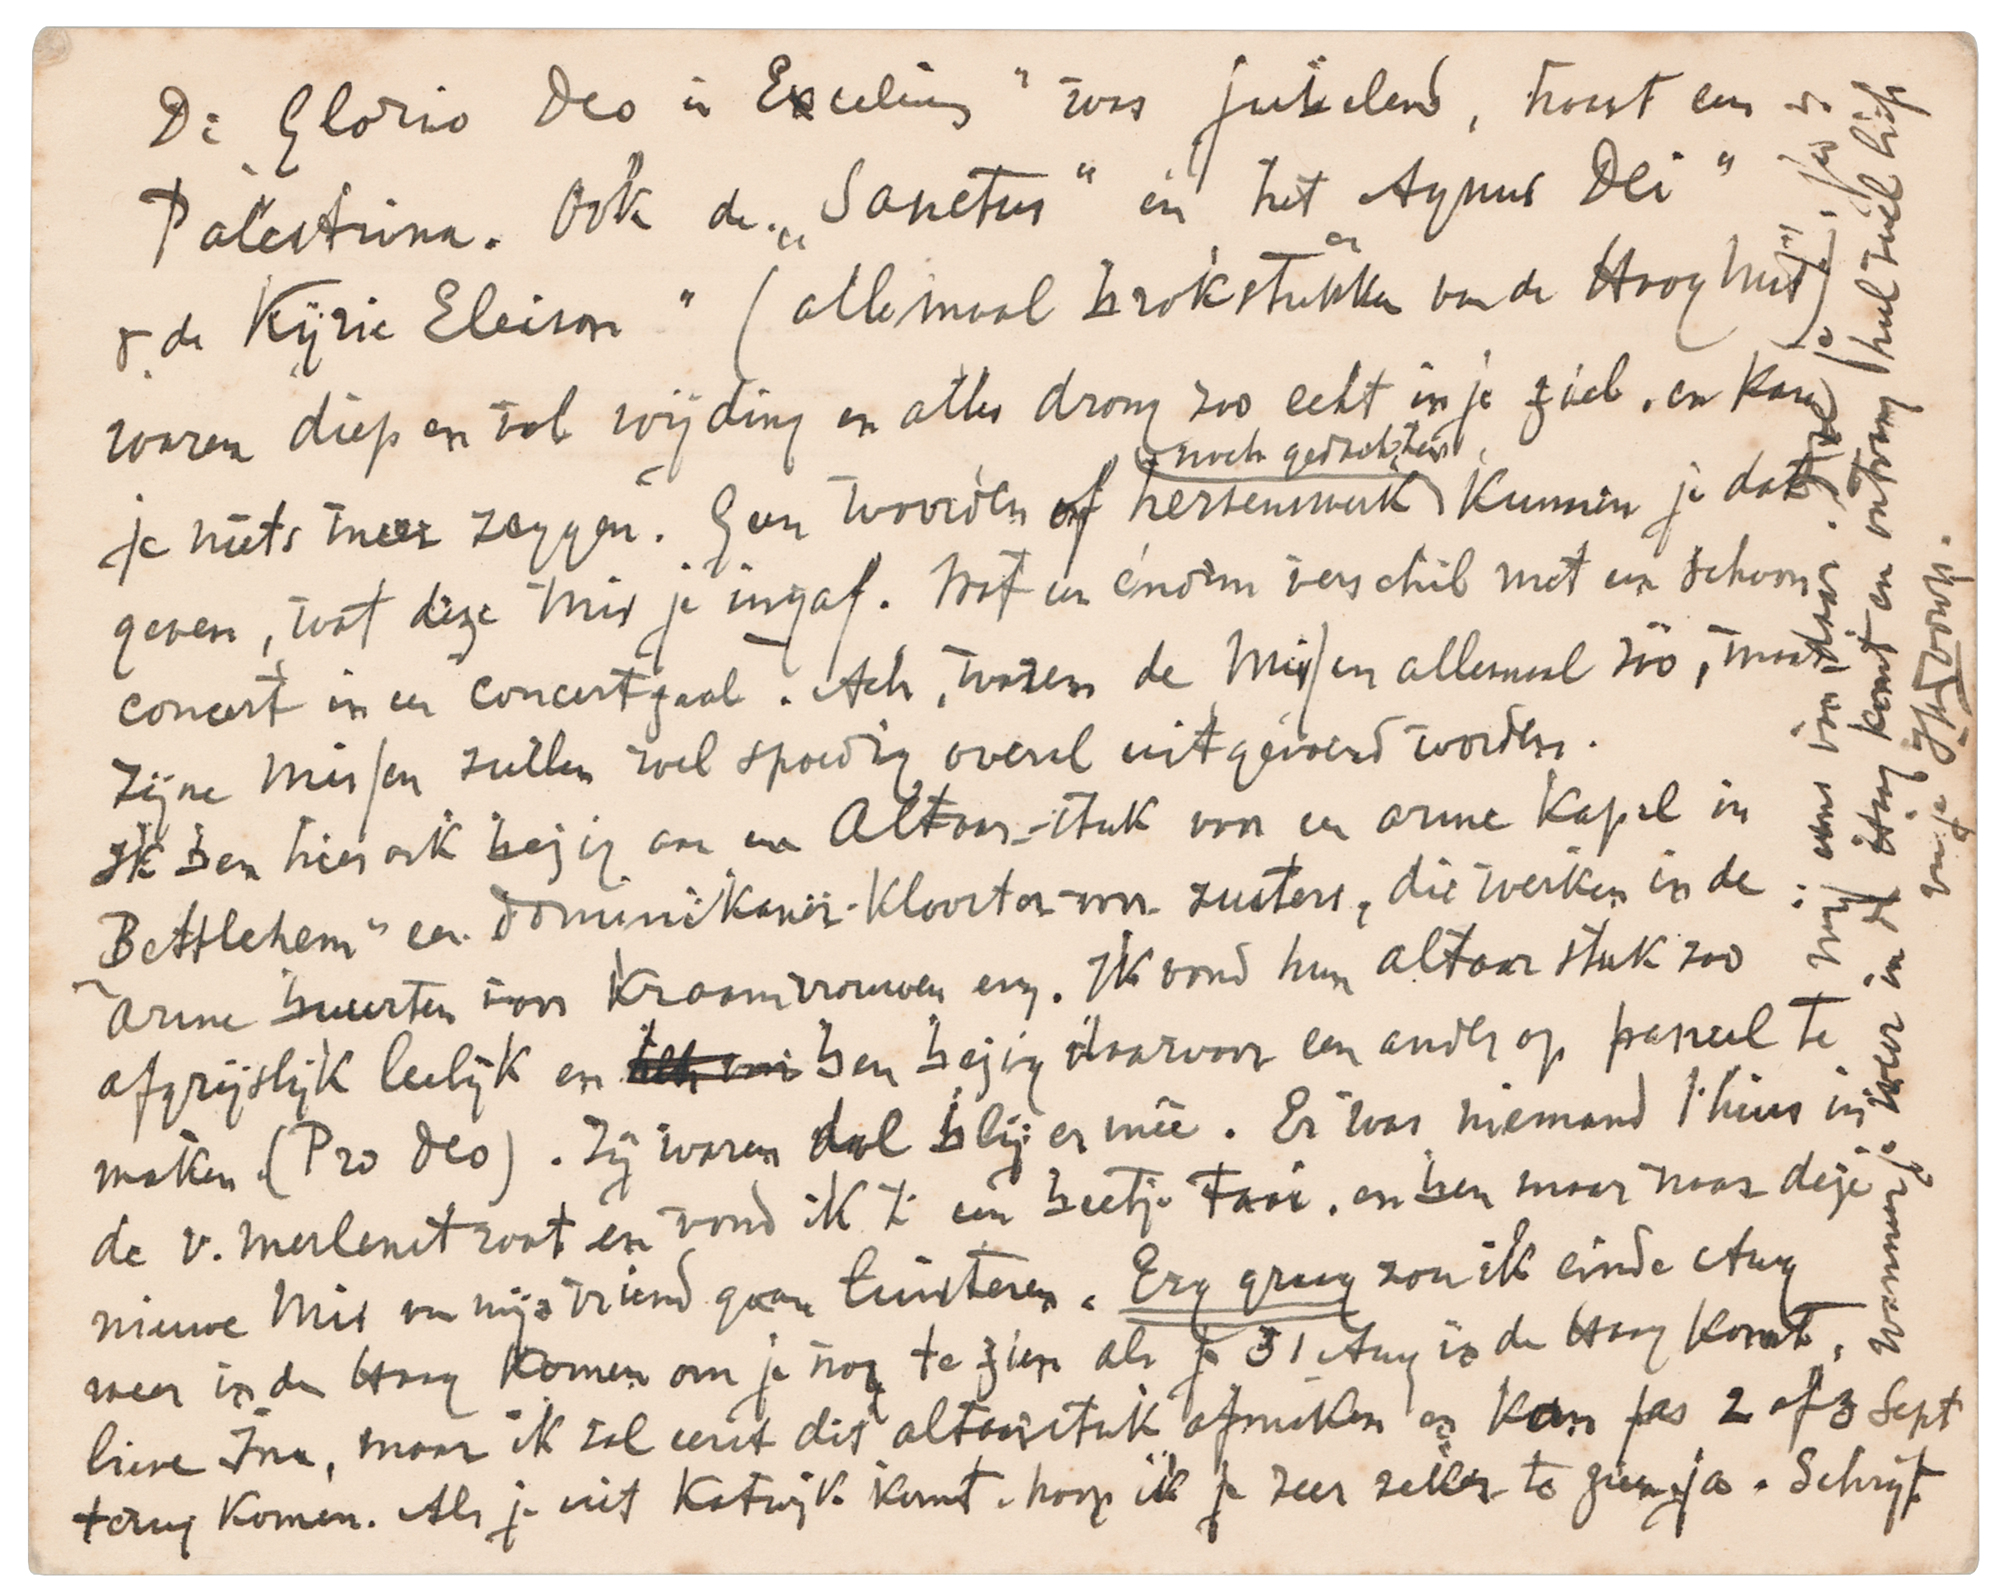 De Gloria Deo in Excelcius" was jubelend, haast een
Palestrina. Ook de „Sanctus" en het Agnus Dei"
& de Kÿrie Eleison" (allemaal brokstukken van de Hoogmis)
waren diep en vol wijding en alles drong zoo echt in je ziel. en kan
je niets meer zeggen. Geen woorden of hersenwerk noch gedachten kunnen je dat
geven, wat deze Mis je ingaf. Wat een énorm verschil met een schoon
concert in een concertzaal. Ach, waren de Missen allemaal zóo, maar
zijne Missen zullen wel spoedig overal uitgevoerd worden.
Ik ben hier ook bezig aan een Altaar-stuk voor een arme Kapel in
Bettlehem" een dominikaner-Klooster voor zusters, die werken in de
arme buurten voor Kraamvrouwen enz. Ik vond hun altaarstuk zoo
afgrijslijk leelijk en ben bezig daarvoor een ander op paneel te
maken (Pro Deo). Zij waren dol blij er meê. Er was niemand thuis in
de v. Merlenstraat en vond ik 't een beetje taai. en ben maar naar deze
nieuwe Mis van mijn vriend gaan luisteren. Erg graag zou ik einde Aug
weer in den Haag komen om je nog te zien als je 31 Aug in de Haag komt,
lieve Ina, maar ik zal eerst dit altaarstuk afmaken en kan pas 2 of 3 Sept
terug komen. Als je uit Katwijk komt. hoop ik je zeer zeker te zien ja. Schrijf
mij eens van daar.
wanneer je weer in d Haag komt en ontvang hul zuel lief
van je JhrToorop.